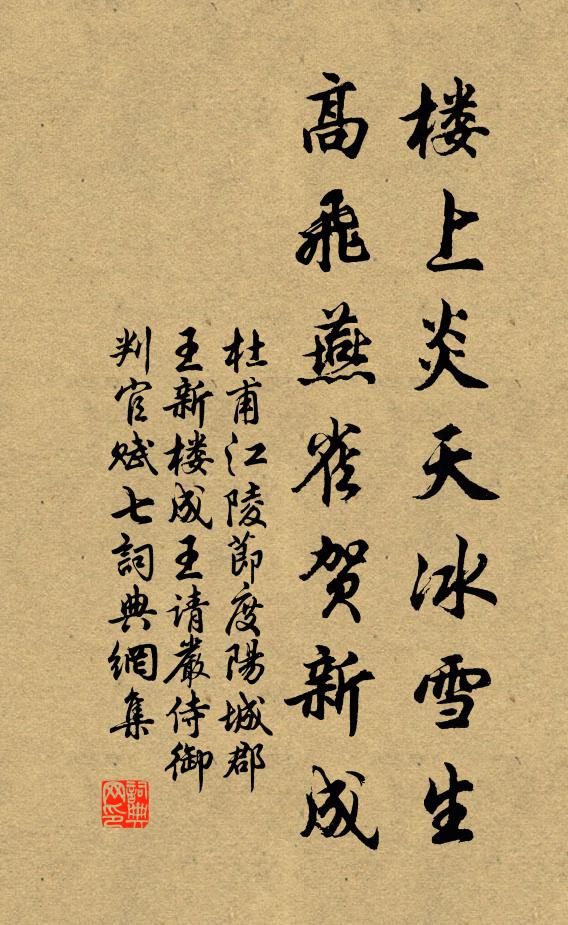 楼上炎天冰雪生
高飛燕雀贺新成
杜甫江陵節度陽城郡
王新楼成王请嚴侍御
判官赋七詞典網集
詞典网印